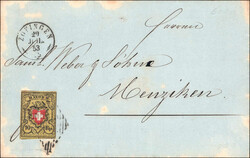 ZOFINGEN
29
JUIL
53
Herren
Saml. Weber & Söhne
Menziken